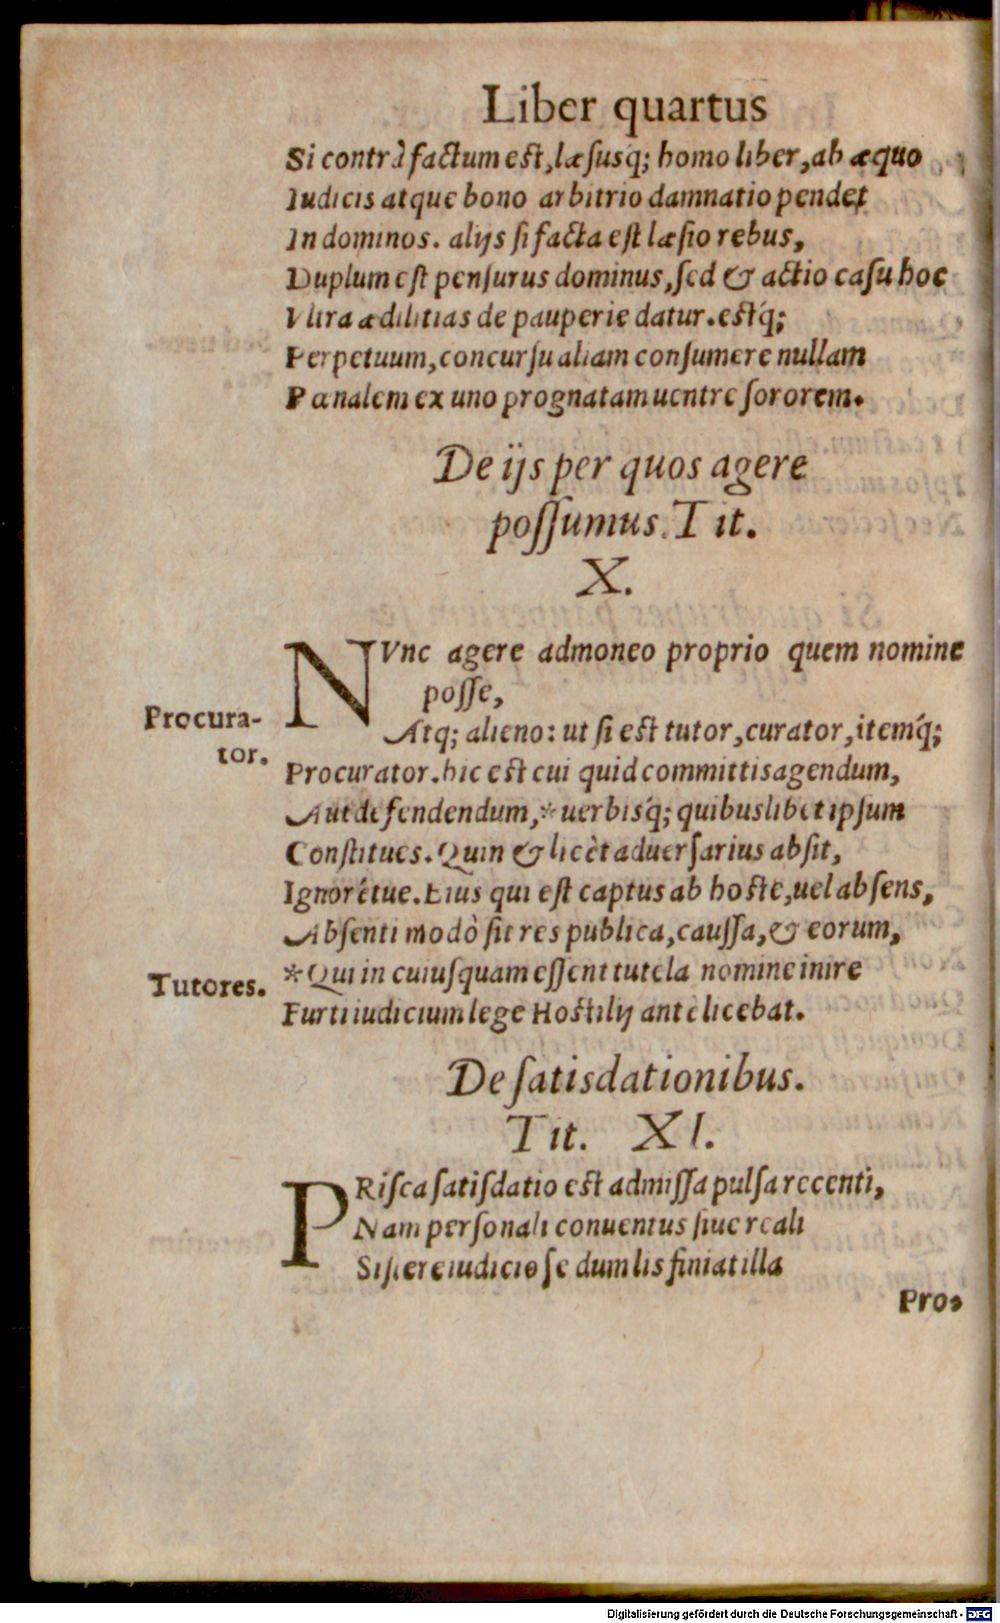 Liber quartus
Si contrà factum est, læsusq́; homo liber, ab æquo
Iudicis atque bono arbitrio damnatio pendet
In dominos. alijs si facta est læsio rebus,
Duplum est pensurus dominus, sed & actio casu hoc
Vltra ædilitias de pauperie datur. estq́;
Perpetuum, concursu aliam consumere nullam
Pœnalem ex uno prognatam uentre sororem.
De ijs per quos agere
possumus. Tit.
X.
NVnc agere admoneo proprio quem nomine
posse,
Procura-
tor.
Atq; alieno: ut si est tutor, curator, itemq́;
Procurator. hic est cui quid committis agendum,
Aut defendendum, * uerbisq́; quibuslibet ipsum
Constitues. Quin & licèt aduersarius absit,
Ignorétue. Eius qui est captus ab hoste, uel absens,
Absenti modò sit res publica, caussa, & eorum,
Tutores.
* Qui in cuiusquam essent tutela nomine inire
Furti iudicium lege Hostilij antè licebat.
De satisdationibus.
Tit. XI.
PRisca satisdatio est admissa pulsa recenti,
Nam personali conuentus siue reali
Sistere iudicio se dum lis finiat illa
Pro-
Digitalisierung gefördert durch die Deutsche Forschungsgemeinschaft - DFG